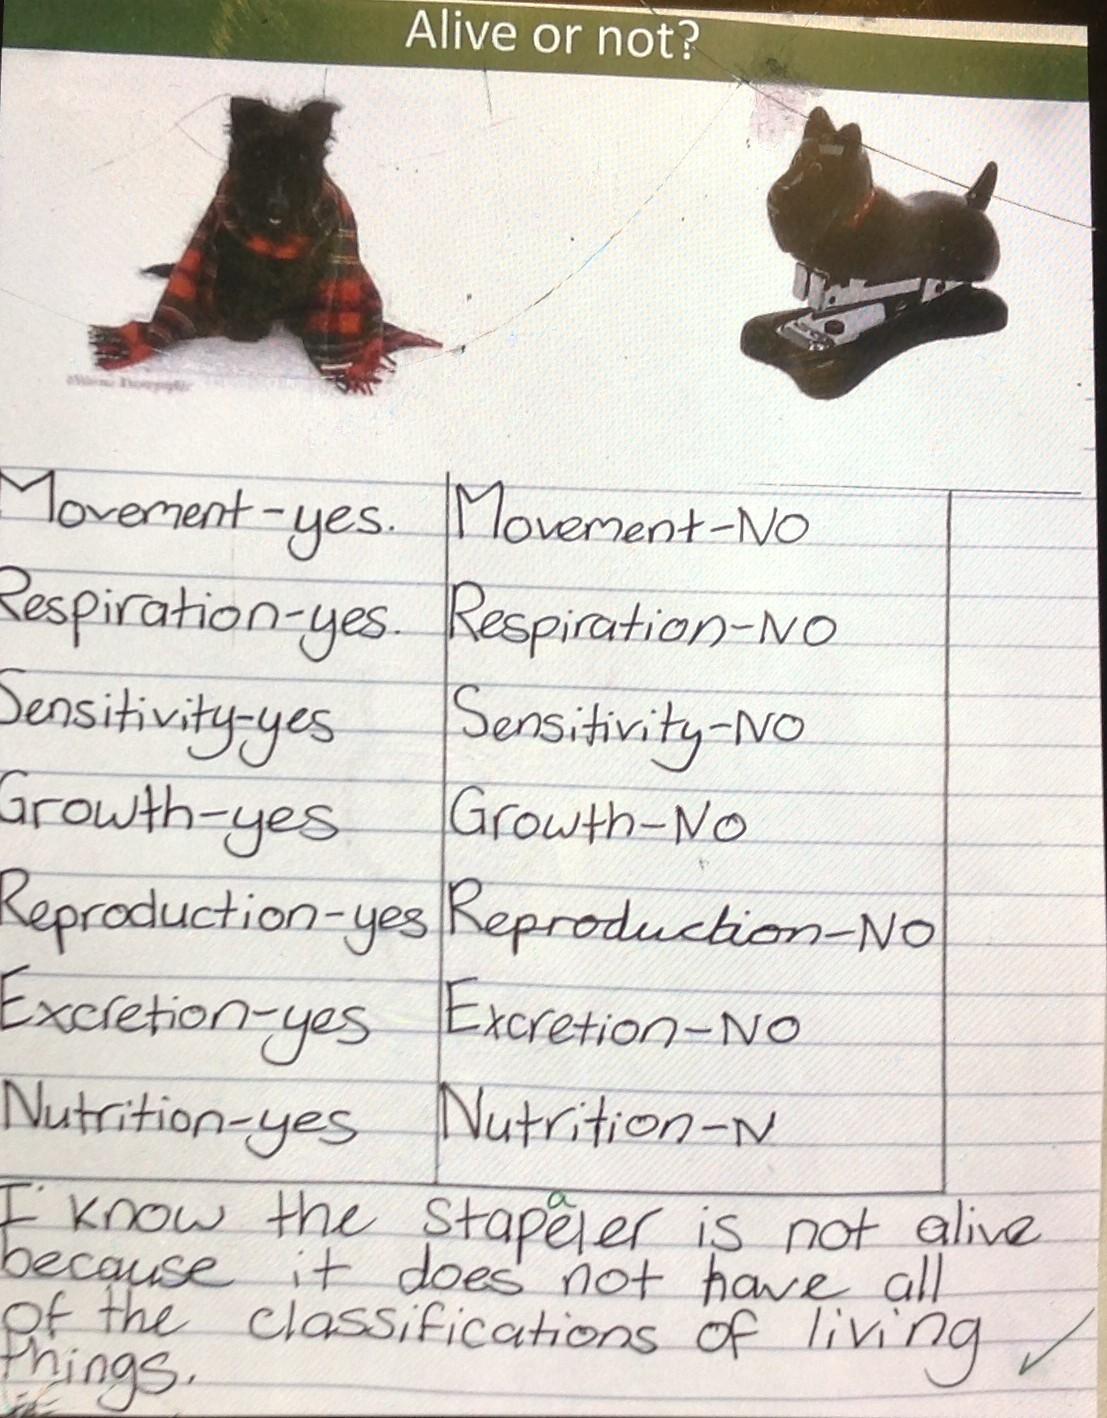 Alive or not?
Movement-yes. Movement-NO
Respiration-yes. Respiration-NO
Sensitivity-yes Sensitivity-NO
Growth-yes Growth-No
Reproduction-yes Reproduction-NO
Excretion-yes Excretion-NO
Nutrition-yes Nutrition-N
a
I know the stapeler is not alive
because it does not have all
of the classifications of living
things.